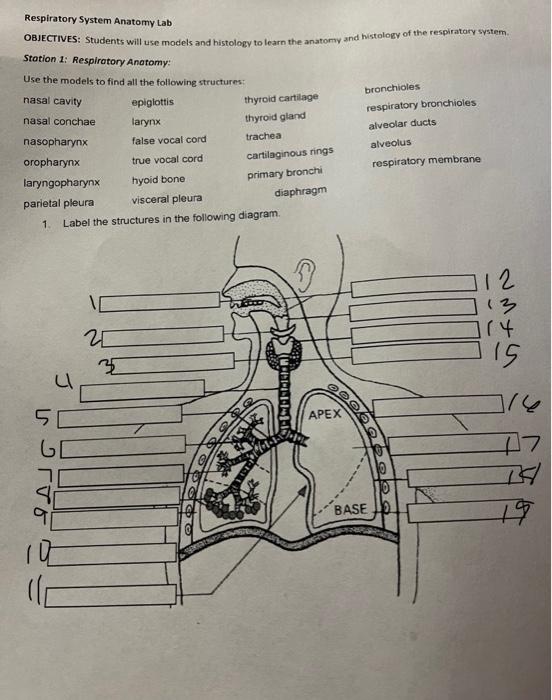 Respiratory System Anatomy Lab
OBJECTIVES: Students will use models and histology to learn the anatomy and histology of the respiratory system.
Station 1: Respiratory Anatomy:
Use the models to find all the following structures:
nasal cavity epiglottis thyroid cartilage bronchioles
nasal conchae larynx thyroid gland respiratory bronchioles
nasopharynx false vocal cord trachea alveolar ducts
oropharynx true vocal cord cartilaginous rings alveolus
laryngopharynx hyoid bone primary bronchi respiratory membrane
parietal pleura visceral pleura diaphragm
1. Label the structures in the following diagram.
1 12
13
2 14
3 15
4
5 APEX 16
6 17
7 18
8
9 BASE 19
10
11